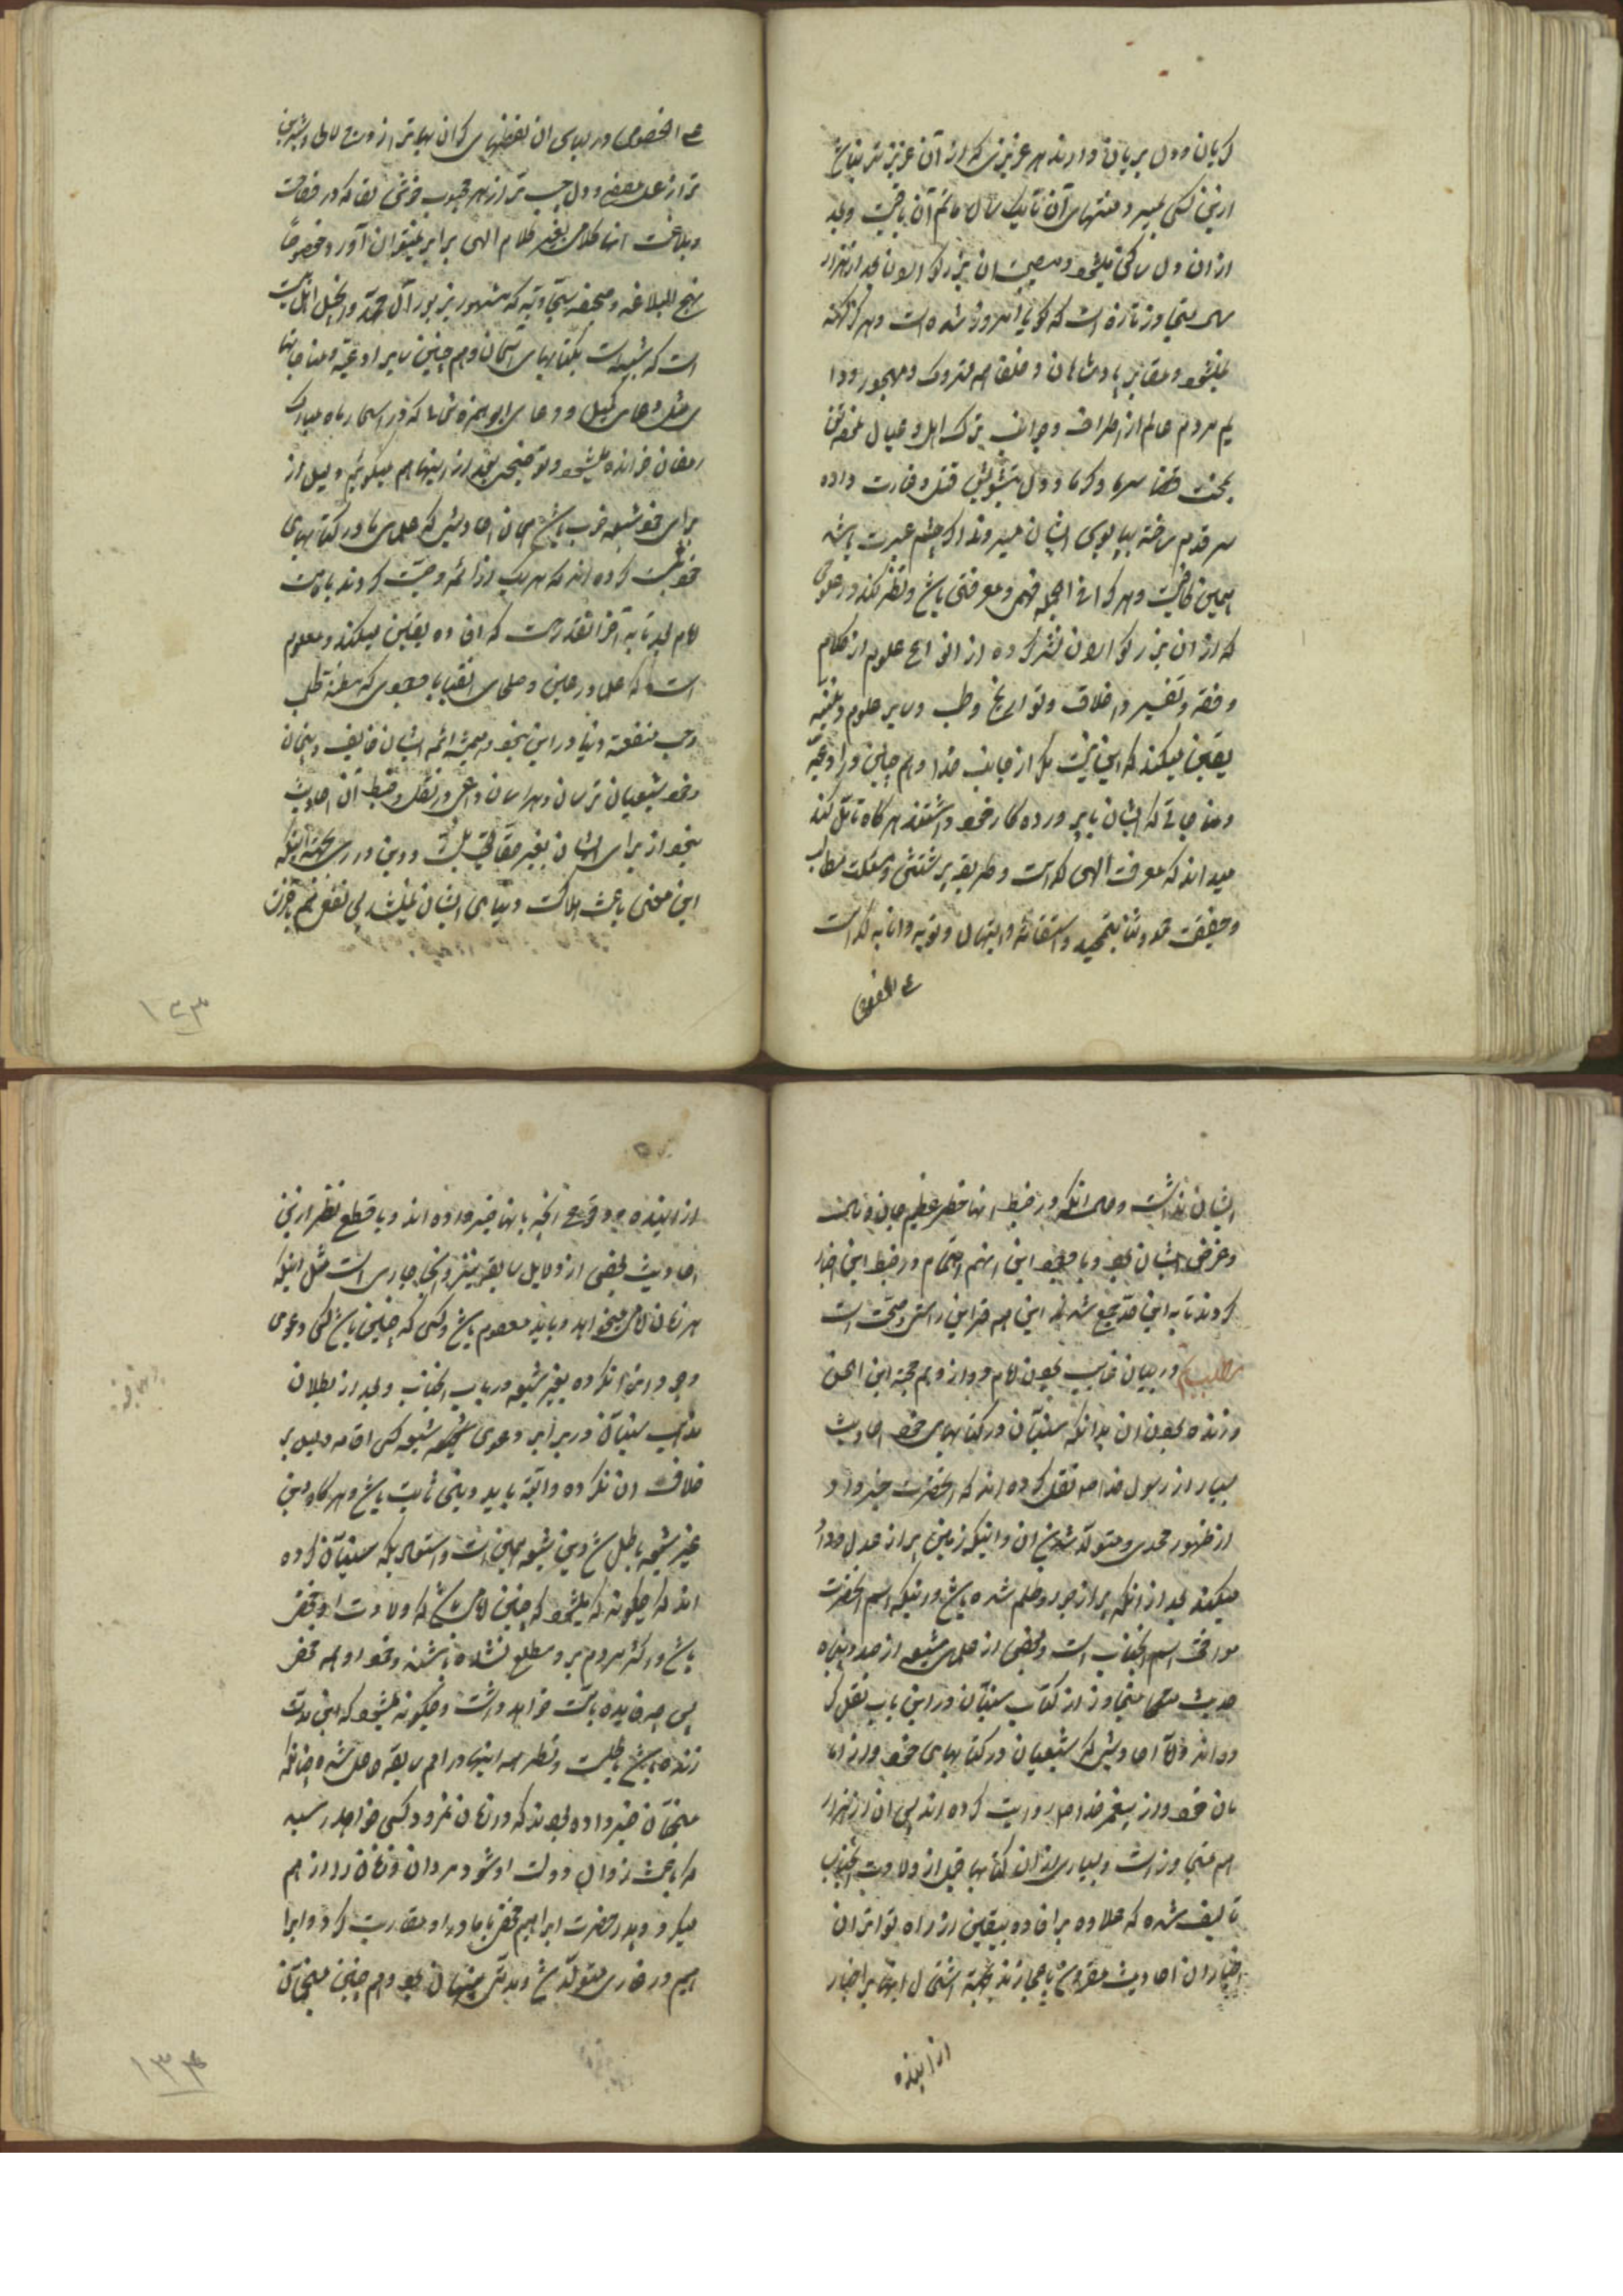 کریان و دل بریان دارند هر عزیزی که از آن عزیز تر نباشد
ازین کسی بمیرد منتهای آن تا یک سال ماتم آن باقیست و بعد
از آن دل ساکن میشود و مصیبت آن بزرکواران بعد از هزار
سال متجاوز تازه است که کویا امروز شده است و هرگز کهنه
نمیشود و مقابر پادشاهان و خلفا همه متروک و مهجور و دا
یم مردم عالم از اطراف و جوانب ترک اهل و عیال
سرما و کرما و دل بتشویش قتل و غارت داده
سر قدم ساخته بپابوس ایشان میروند اگر چشم عبرت باشد
همین کافیست و هر که را فی الجمله فهم و معرفتی باشد و نظر کند در علومی
که از آن بزرکواران نشر کرده از انواع علوم از کلام
و فقه و تفسیر و اخلاق و تواریخ و طب و سایر علوم دینیه
یقین میکند که این نیست مکر از جانب خدا و هم چنین در ادعیه
و مناجاتی که ایشان با پروردکار خود داشتند هر کاه تأمل کند
میداند که معرفت الهی کدام است و طریقه پرستش و مسئلت مطالب
و حقیقت حمد و ثنا و تمجید و استغاثه و ابتهال و توبه و انابه کدام است
علی الخصوص
علی الخصوص در لباس آن لفظهای که آن بهاتر از
تر از عسل مصفی و دل چسب تر از هر محبوب خوش لقا که در فصاحت
و بلاغت آنها کلامی بغیر کلام الهی برابر نمیتوان آورد خصوصًا
نهج البلاغه و صحیفه سجادیه که مشهور بزبور آل محمد و انجیل اهل بیت
است که شبیه است بکتابهای آسمان و هم چنین سایر ادعیه و مناجاتها
ی مثل دعای کمیل و دعای ابو حمزه ثمالی که در اسحار ماه مبارک
رمضان خوانده میشود و توضیحی بعد ازینها هم میکوئیم و دلیل از
برای خود شیعه خوب باشد همان احادیثی که علمای ما در کتابهای
خود ثبت کرده اند که هر یک از ائمه وصیّت کردند بامامت
امام بعد تا به آخر آنقدر هست که افاده یقین میکند و معلوم
است که علما در عین و صلحای اتقیا با وجودی که مظنه طلب
و حب منفعت دنیا در این نبود و همیشه ائمه ایشان خائف و پنهان
و خود شیعیان ترسان و هراسان داعی در نقل و ضبط آن احادیث
نبود از برای ایشان بغیر حقانیت و دین داری بجهت اینکه
این معنی باعث هلاکت دنیای ایشان میشد پس نفعی هم بآخرت
۱۳۳
ایشان نداشت و حال آنکه در ضبط آنها خطر عظیم جان و مال
و عرض ایشان بود و با وجود این اینهم اهتمام در ضبط این اخبار
کردند تا به این حد جمع شد که این همه قراین راستی و صحت است
مطلب در بیان غایب بودن امام دوازدهم حجة ابن الحسن
و زنده بودن آن بدانکه سنیان در کتابهای خود احادیث
بسیار از رسول خدا صه نقل کرده اند که آنحضرت خبر داده
از ظهور مهدی و متولد شدن آن و اینکه زمین پر از عدل و داد
میکند بعد از آنکه پر از جور و ظلم شده باشد و اینکه اسم آنحضرت
موافق اسم آنجناب است و بعضی از علمای شیعه از صد و پنجاه
حدیث متجاوز از کتاب سنیان در این باب نقل کر
ده اند و اما احادیثی که شیعیان در کتابهای خود از اما
مان خود و از پیغمبر خدا صه روایت کرده اند پس آن از هزار
هم متجاوز است و بسیاری از آن کتابها قبل از ولادت آنجناب
تالیف شده که علاوه بر افاده یقین از راه تواتر آن
اخبار آن احادیث مقرون باعجازند بجهة اشتمال آنها بر اخبار
از آینده
از آینده و وقوع آنچه بآنها خبر داده اند و با قطع نظر ازین
احادیث بعضی از دلایل سابقه نیز در اینجا جاری است مثل اینکه
هر زمان امامی میخواهد و باید معصوم باشد و کسی که چنین باشد کسی دعوی
وجود این را نکرده بغیر شیعه در باب آنجناب و بعد از بطلان
مذهب سنیان در برابر دعوی شیعه کسی اقامه دلیل بر
خلاف آن نکرده و البته باید دینی ثابت باشد و هر کاه دین
غیر شیعه باطل شد دین شیعه همین است و استبعادیکه سنیان کرده
اند که چکونه میشود که چنین امامی باشد که ولادت او مخفی
باشد و اکثر مردم بر او مطلع نشده باشند و خود او هم مخفی
پس چه فایده بامامت خواهد داشت و چکونه میشود که این مدت
زنده باشد باطلست و نظیر همه اینها در امم سابقه حاصل شده چنانکه
منجمان خبر داده بودند که در زمان نمرود کسی خواهد رسید
که باعث زوال دولت او شود و مردان و زنان را از هم
میکرد و پدر حضرت ابراهیم مخفی با مادر او مقاربت کرد و ابرا
هیم در غاری متولد شد و مدتی پنهان بود و هم چنین منجمان
۱۳۴